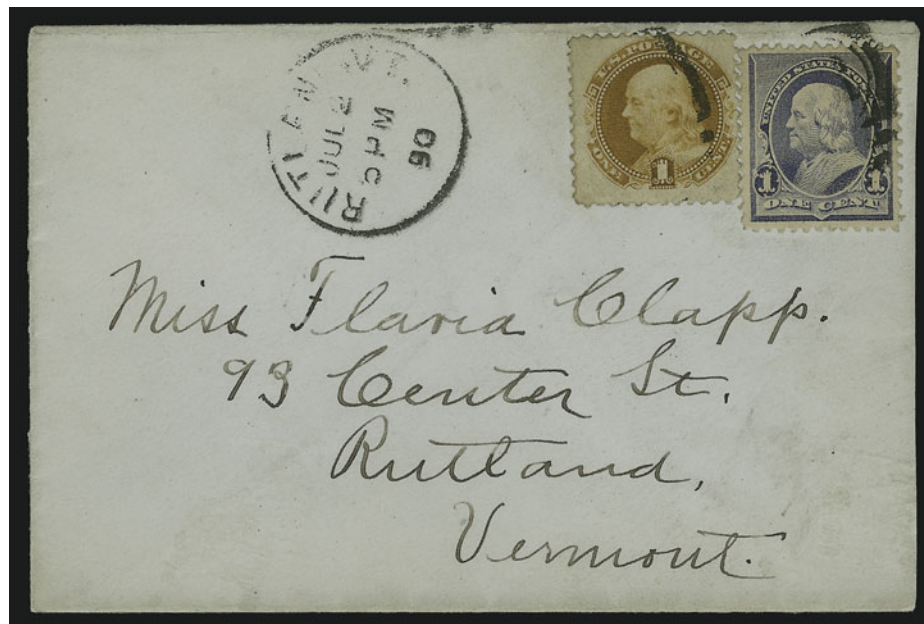 RUTLAND VT.
JUL 2
PM
90
U.S. POSTAGE
ONE CENT
1
UNITED STATES POSTAGE
1 1
ONE CENT
Miss Flavia Clapp.
93 Center St.
Rutland,
Vermont.